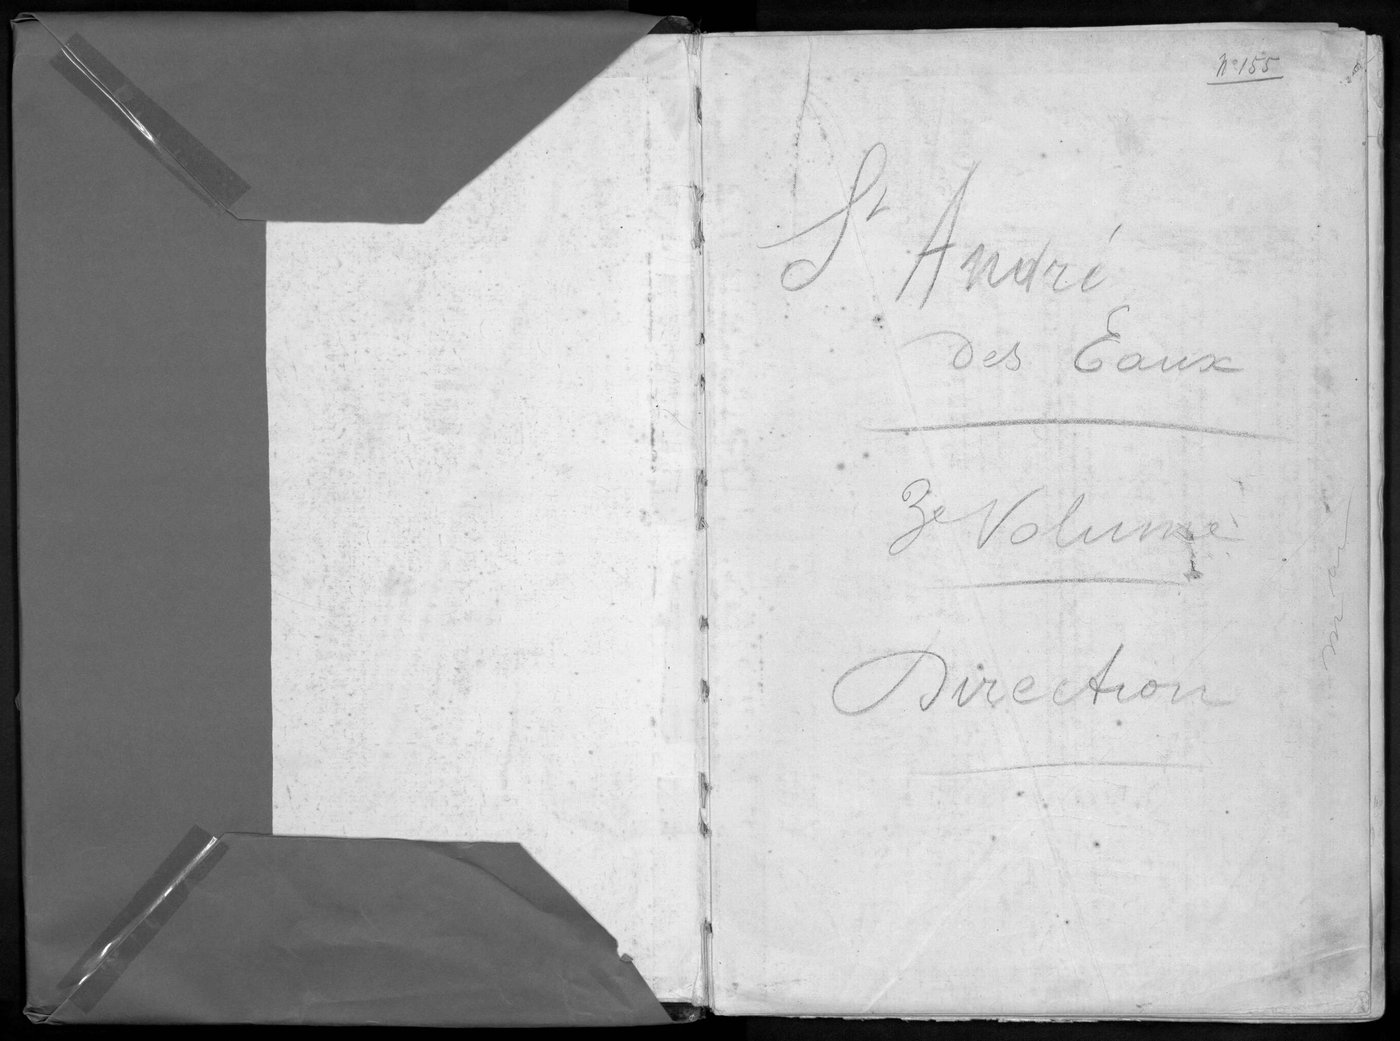 N° 155
St André
des Eaux
3e Volume
Direction